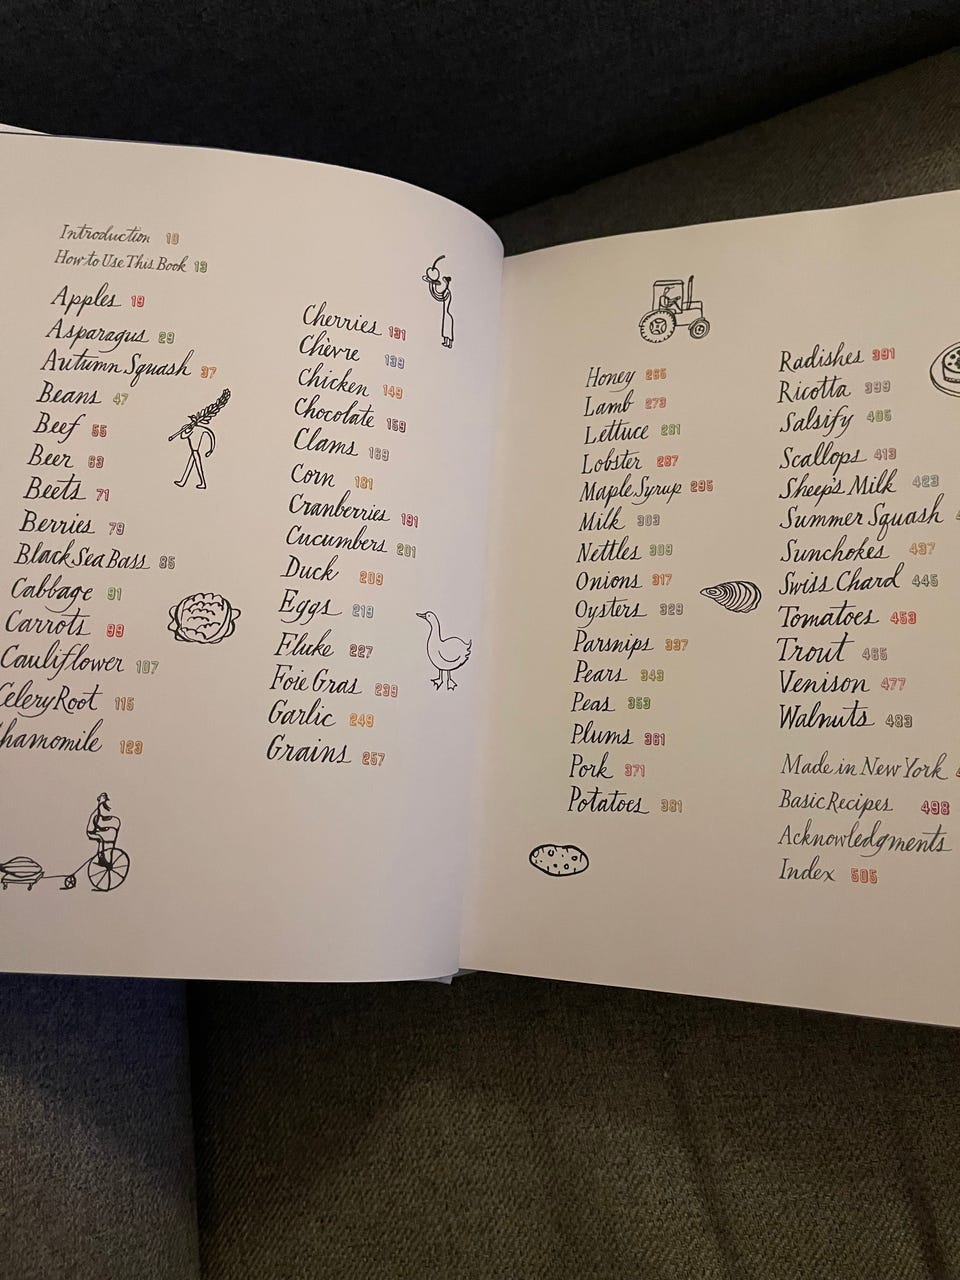 Introduction 10
How to Use This Book 13
Apples 19
Asparagus 29
Autumn Squash 37
Beans 47
Beef 55
Beer 63
Beets 71
Berries 79
Black Sea Bass 85
Cabbage 91
Carrots 99
Cauliflower 107
Celery Root 115
Chamomile 123
Cherries 131
Chèvre 139
Chicken 149
Chocolate 159
Clams 169
Corn 181
Cranberries 191
Cucumbers 201
Duck 209
Eggs 219
Fluke 227
Foie Gras 239
Garlic 249
Grains 257
Honey 265
Lamb 273
Lettuce 281
Lobster 287
Maple Syrup 295
Milk 303
Nettles 309
Onions 317
Oysters 329
Parsnips 337
Pears 343
Peas 353
Plums 361
Pork 371
Potatoes 381
Radishes 391
Ricotta 399
Salsify 405
Scallops 413
Sheep's Milk 423
Summer Squash
Sunchokes 437
Swiss Chard 445
Tomatoes 453
Trout 465
Venison 477
Walnuts 483
Made in New York
Basic Recipes 498
Acknowledgments
Index 505